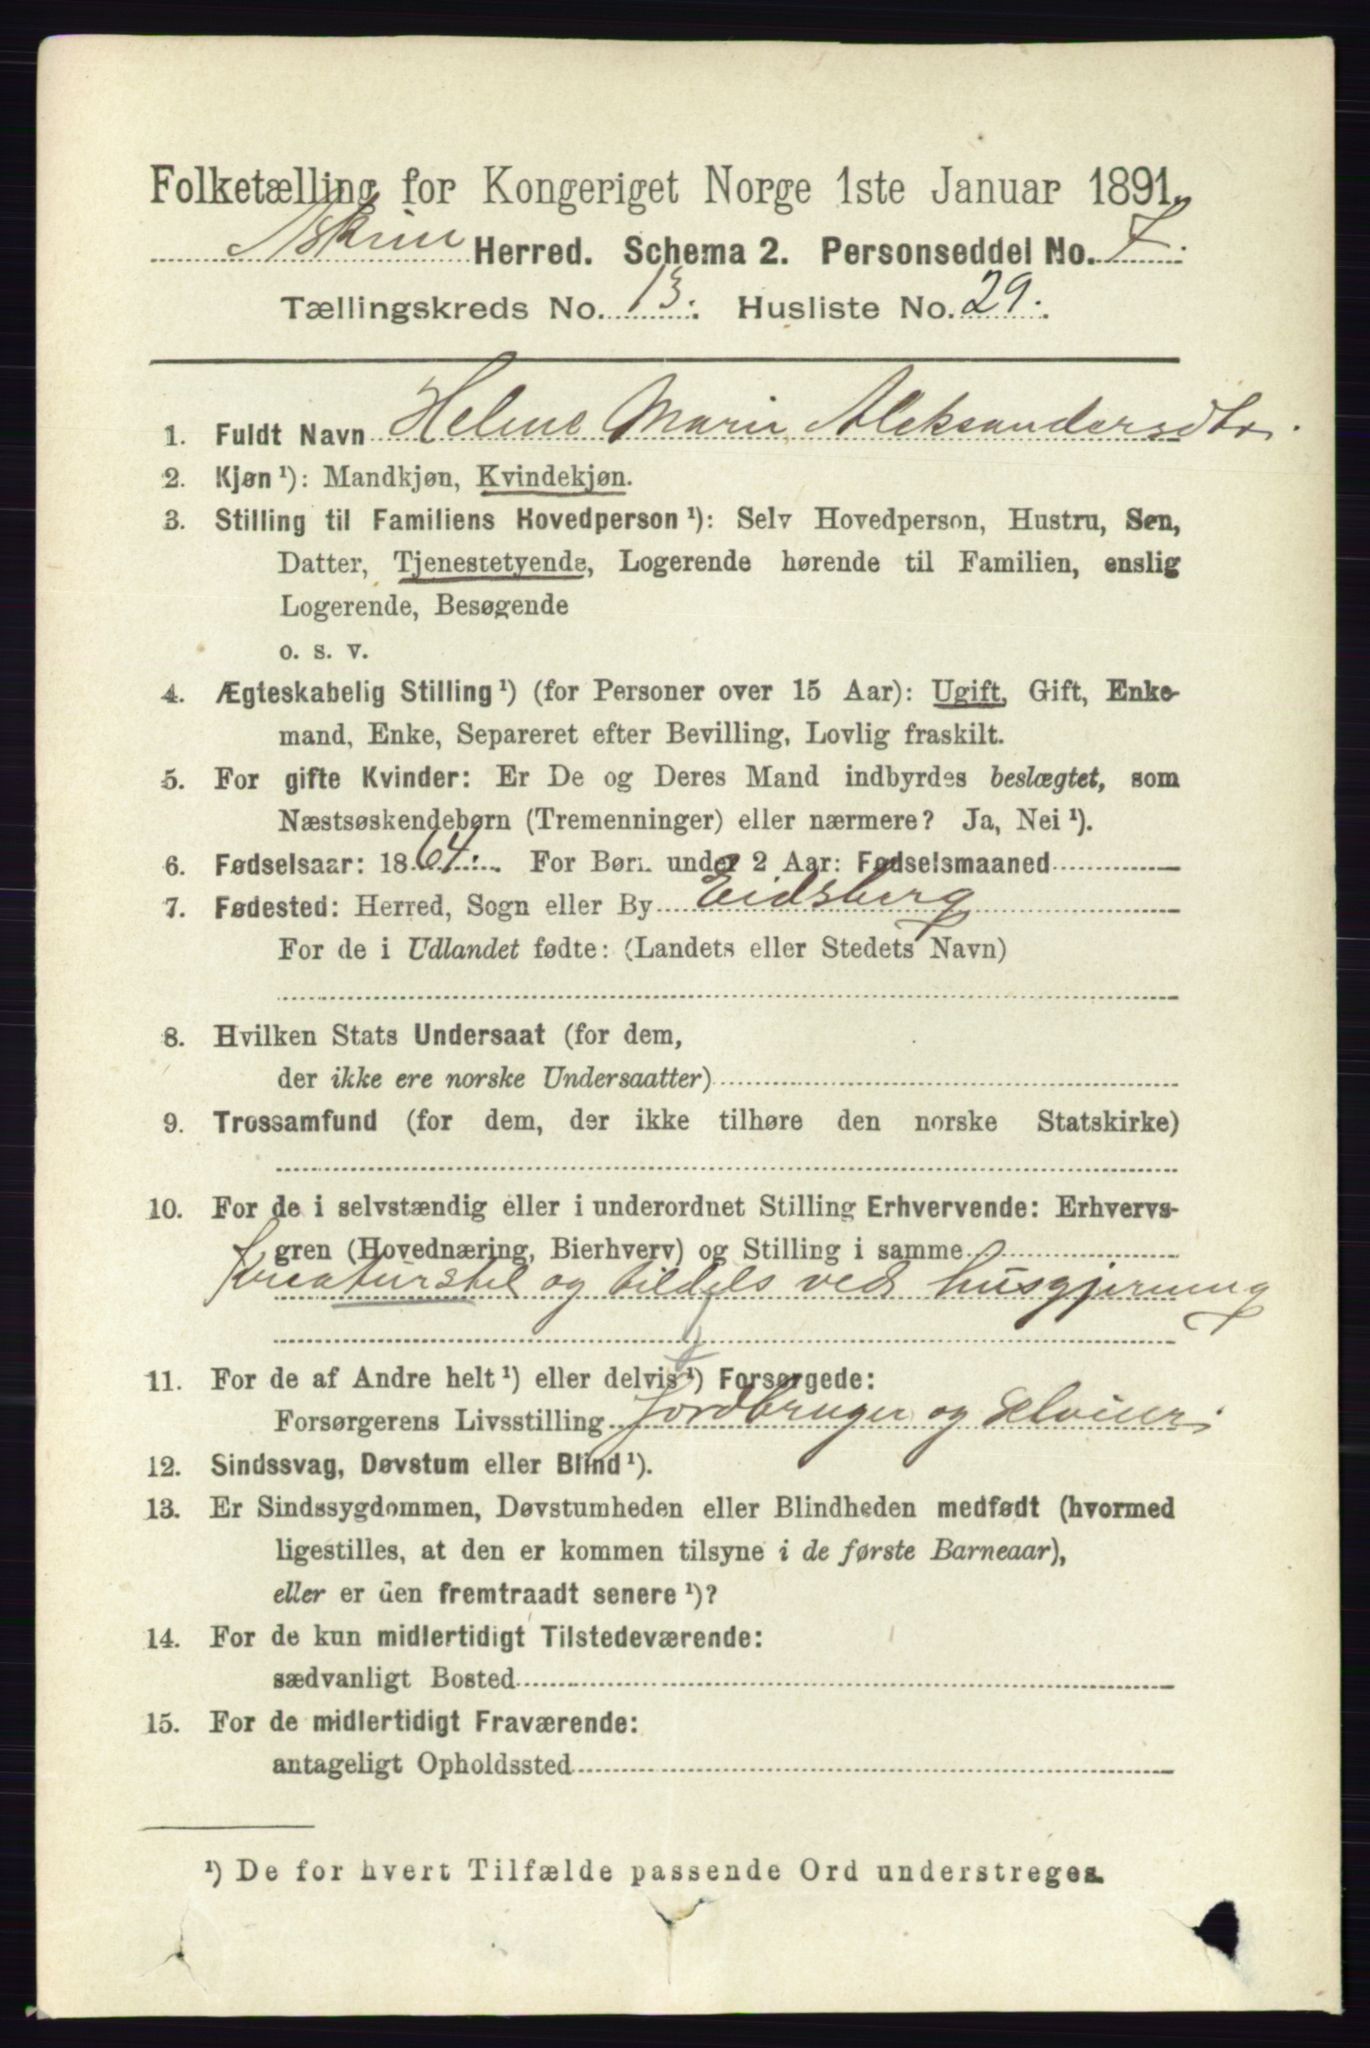 Folketælling for Kongeriget Norge 1ste Januar 1891.
Askim Herred. Schema 2. Personseddel No. 7.
Tællingskreds No. 13. Husliste No. 29.
1. Fuldt Navn Helene Marie Aleksandersdtr.
2. Kjøn ¹): Mandkjøn, Kvindekjøn.
3. Stilling til Familiens Hovedperson ¹): Selv Hovedperson, Hustru, Søn,
Datter, Tjenestetyende, Logerende hørende til Familien, enslig
Logerende, Besøgende
o. s. v.
4. Ægteskabelig Stilling ¹) (for Personer over 15 Aar): Ugift, Gift, Enke-
mand, Enke, Separeret efter Bevilling, Lovlig fraskilt.
5. For gifte Kvinder: Er De og Deres Mand indbyrdes beslægtet, som
Næstsøskendebørn (Tremenninger) eller nærmere? Ja, Nei ¹).
6. Fødselsaar: 1864. For Børn under 2 Aar: Fødselsmaaned
7. Fødested: Herred, Sogn eller By Eidsberg
For de i Udlandet fødte: (Landets eller Stedets Navn)
8. Hvilken Stats Undersaat (for dem,
der ikke ere norske Undersaatter)
9. Trossamfund (for dem, der ikke tilhøre den norske Statskirke)
10. For de i selvstændig eller i underordnet Stilling Erhvervende: Erhvervs-
gren (Hovednæring, Bierhverv) og Stilling i samme
Kreaturstel og tildels ved husgjerning
11. For de af Andre helt ¹) eller delvis ¹) Forsørgede:
Forsørgerens Livsstilling Jordbruger og Selveier.
12. Sindssvag, Døvstum eller Blind ¹).
13. Er Sindssygdommen, Døvstumheden eller Blindheden medfødt (hvormed
ligestilles, at den er kommen tilsyne i de første Barneaar),
eller er den fremtraadt senere ¹)?
14. For de kun midlertidigt Tilstedeværende:
sædvanligt Bosted
15. For de midlertidigt Fraværende:
antageligt Opholdssted
¹) De for hvert Tilfælde passende Ord understreges.